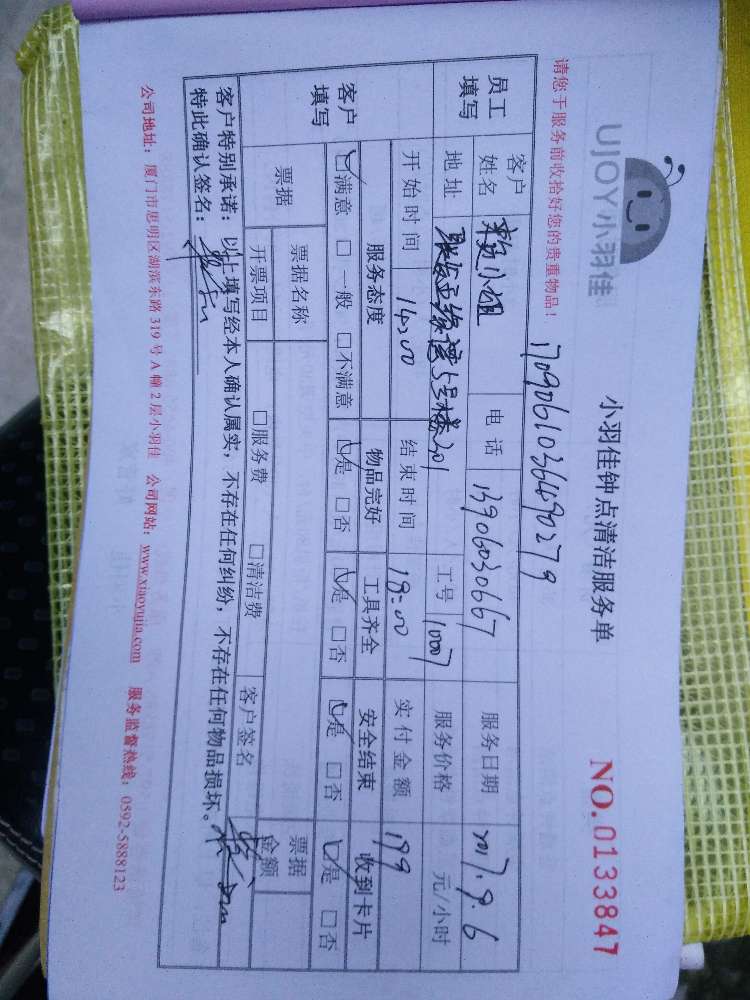 UJOY小羽佳
小羽佳钟点清洁服务单
NO.0133847
请您于服务前收拾好您的贵重物品!
1709061036490279
员工填写
客户姓名 小姐 电话 13906030667 服务日期 2017.9.6
地址 联发五缘湾1号5号楼301 工号 10007 服务价格 元/小时
开始时间 14:00 结束时间 18:00 实付金额 199
客户填写
服务态度 物品完好 工具齐全 安全结束 收到卡片
☑满意 □一般 □不满意 ☑是 □否 ☑是 □否 ☑是 □否 ☑是 □否
票据 票据名称 客户签名 票据金额
开票项目 □服务费 □清洁费
客户特别承诺:以上填写经本人确认属实,不存在任何纠纷,不存在任何物品损坏。
特此确认签名:
公司地址:厦门市思明区湖滨东路319号A幢2层小羽佳 公司网站:www.xiaoyujia.com 服务监督热线:0592-5888123